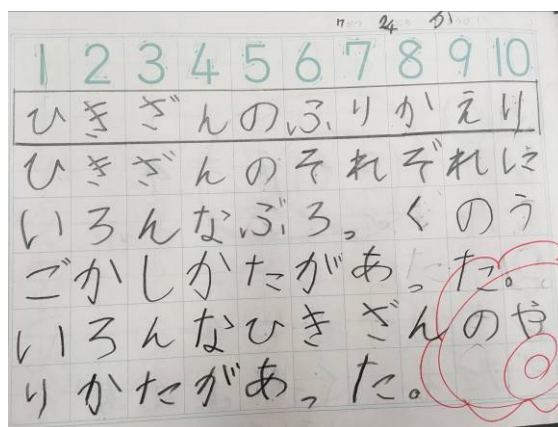 7 24 か
1 2 3 4 5 6 7 8 9 10
ひきざんのふりかえり
ひきざんのそれぞれに
いろんなぶろっくのう
ごかしかたがあった。
いろんなひきざんのや
りかたがあった。